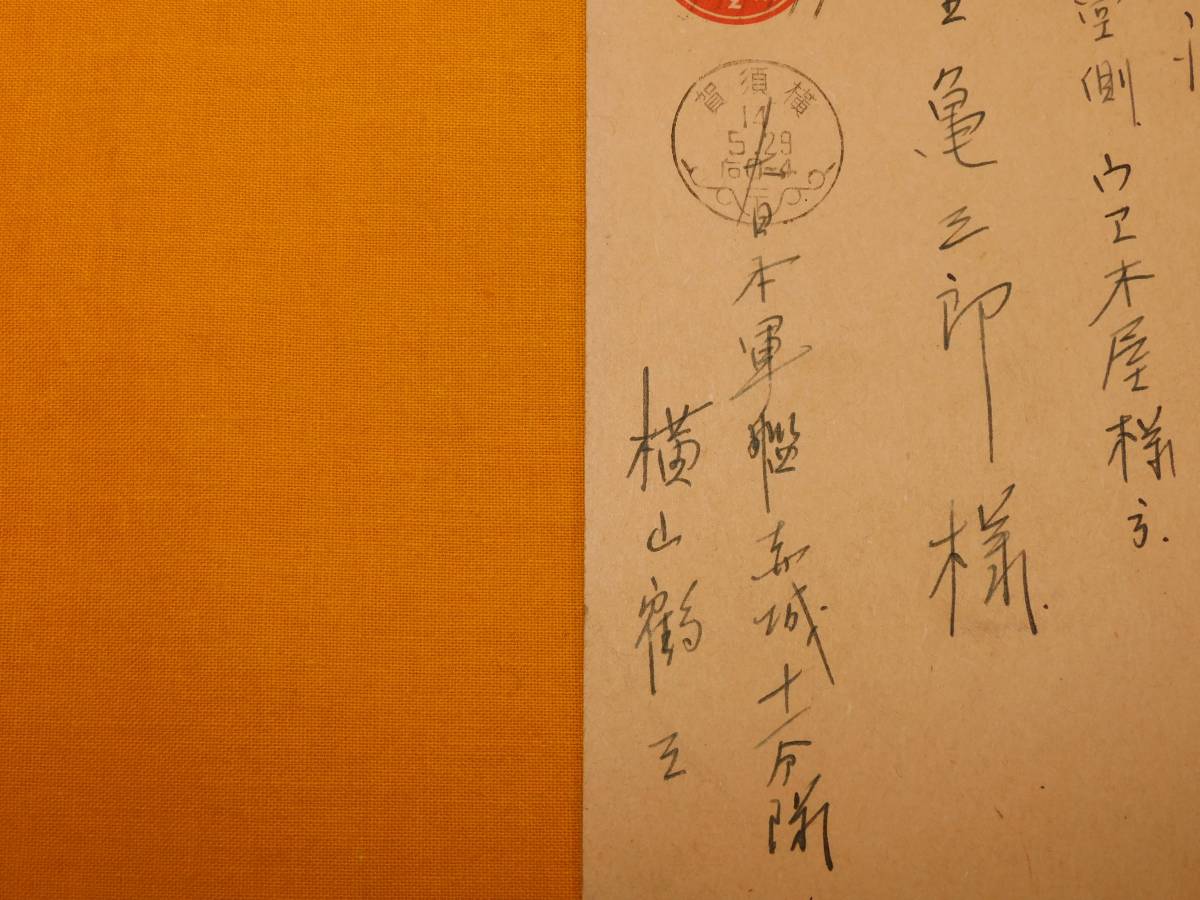 室側ウエ木屋様方.
亀三郎様.
横須賀
14
5.29
后0-4
大日本軍艦赤城十一分隊
横山鶴三